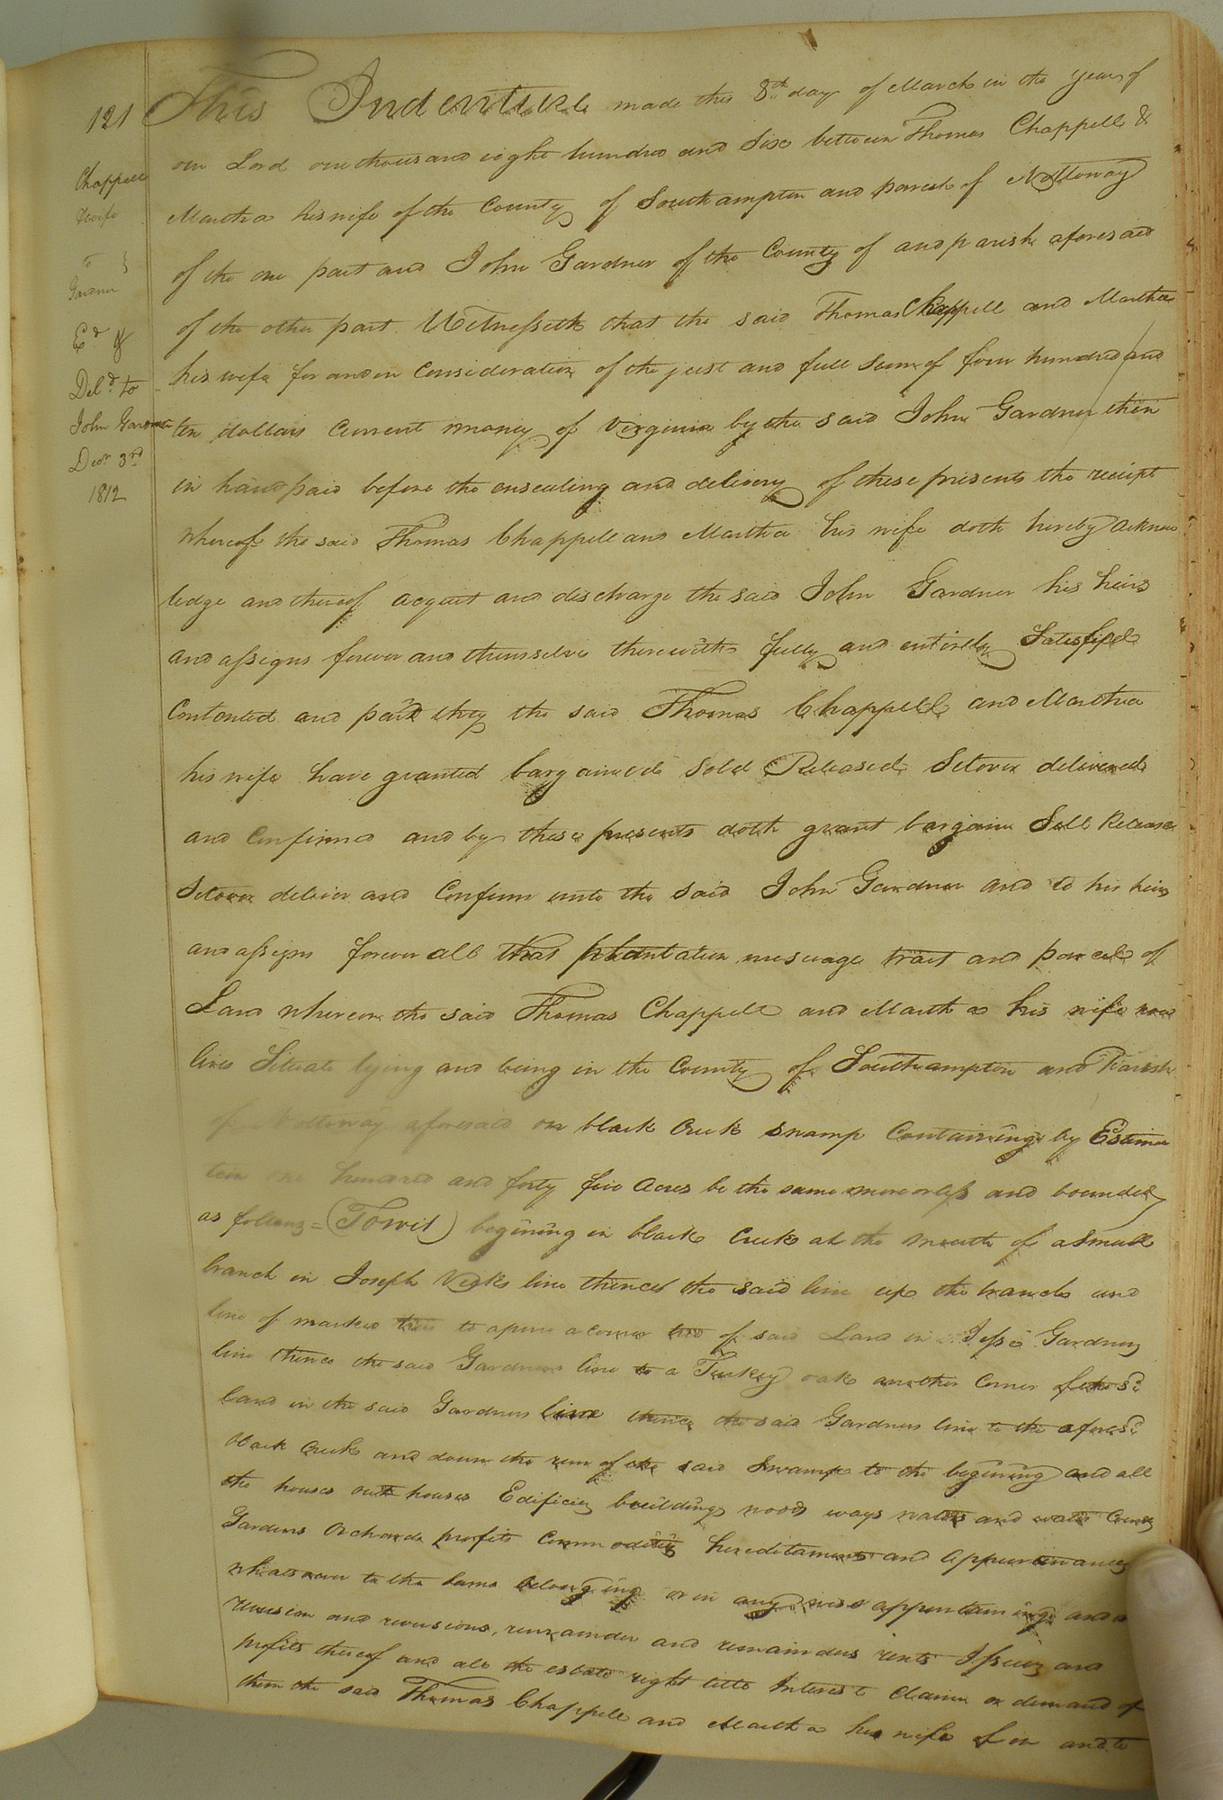 121
Chappell
& wife
to }
Gardner
Ed &
Deld to
John Gardner
Decr 3rd
1812
This Indenture made this 8th day of March in the year of
our Lord one thousand eight hundred and Six between Thomas Chappell &
Martha his wife of the County of Southampton and parish of Nottoway
of the one part and John Gardner of the County of and parish aforesaid
of the other part. Witnesseth that the said Thomas Chappell and Martha
his wife for and in Consideration of the just and full Sum of four hundred and
ten dollars Current money of Virginia by the said John Gardner then
in hand paid before the ensealing and delivery of these presents the receipt
whereof the said Thomas Chappell and Martha his wife doth hereby acknow
ledge and thereof acquit and discharge the said John Gardner his heirs
and assigns forever and themselves therewith fully and entirely Satisfied
Contented and paid they the said Thomas Chappell and Martha
his wife have granted bargained Sold Released Setover delivered
and Confirmed and by these presents doth grant bargain Sell Release
Setover deliver and Confirm unto the said John Gardner and to his heirs
and assigns forever all that plantation messuage tract and parcel of
Land whereon the said Thomas Chappell and Martha his wife now
lives Situate lying and being in the County of Southampton and Parish
of Nottoway aforesaid on black Creek swamp Containing by Estima
tion one hundred and forty five Acres be the same more or less and bounded
as follows = (Towit) begining in black Creek at the mouth of a Small
branch in Joseph Vicks line thence the said line up the branch and
line of marked trees to a pine a corner tree of said Land in Jesse Gardners
line thence the said Gardners line to a Turkey oak another Corner of the sd
land in the said Gardners line thence the said Gardners line to the aforesd
black Creek and down the run of the said Swamp to the begining and all
the houses out houses Edificies buildings woods ways waters and water Courses
Gardens Orchards profits Commodities hereditaments and appurtenances
whatsoever to the same belonging or in any wise appertaining and
reversion and reversions, remainder and remainders rents Issues and
profits thereof and all the estate right title Interest Claim or demand of
them the said Thomas Chappell and Martha his wife of in and to